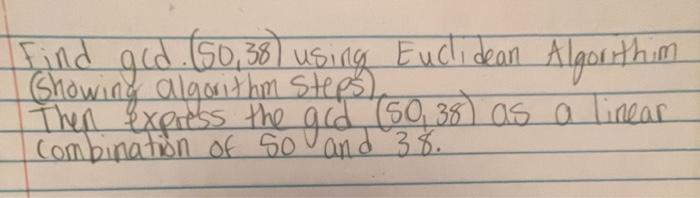 Find gcd.(50,38) using Euclidean Algorithim
(Showing algorithm steps)
Then express the gcd (50,38) as a linear
combination of 50 and 38.